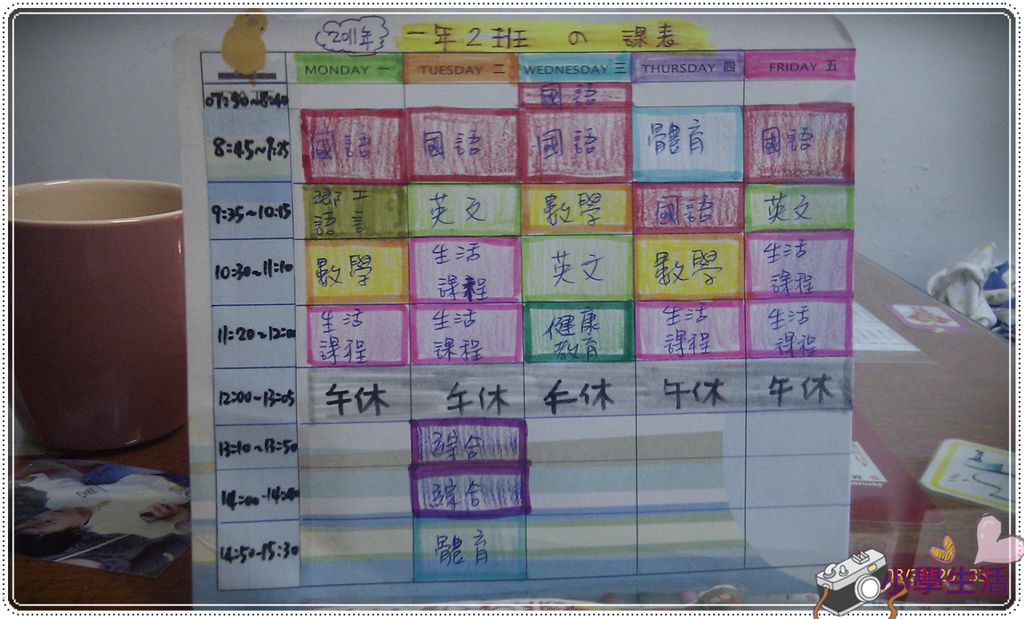 2011年 一年2班 の 課表
MONDAY 一 TUESDAY 二 WEDNESDAY 三 THURSDAY 四 FRIDAY 五
07:50~8:40 國語
8:45~9:25 國語 國語 國語 體育 國語
9:35~10:15 鄉土語言 英文 數學 國語 英文
10:30~11:10 數學 生活課程 英文 數學 生活課程
11:20~12:00 生活課程 生活課程 健康教育 生活課程 生活課程
12:00~13:05 午休 午休 午休 午休 午休
13:10~13:50 綜合
14:00~14:40 綜合
14:50~15:30 體育
小學生活